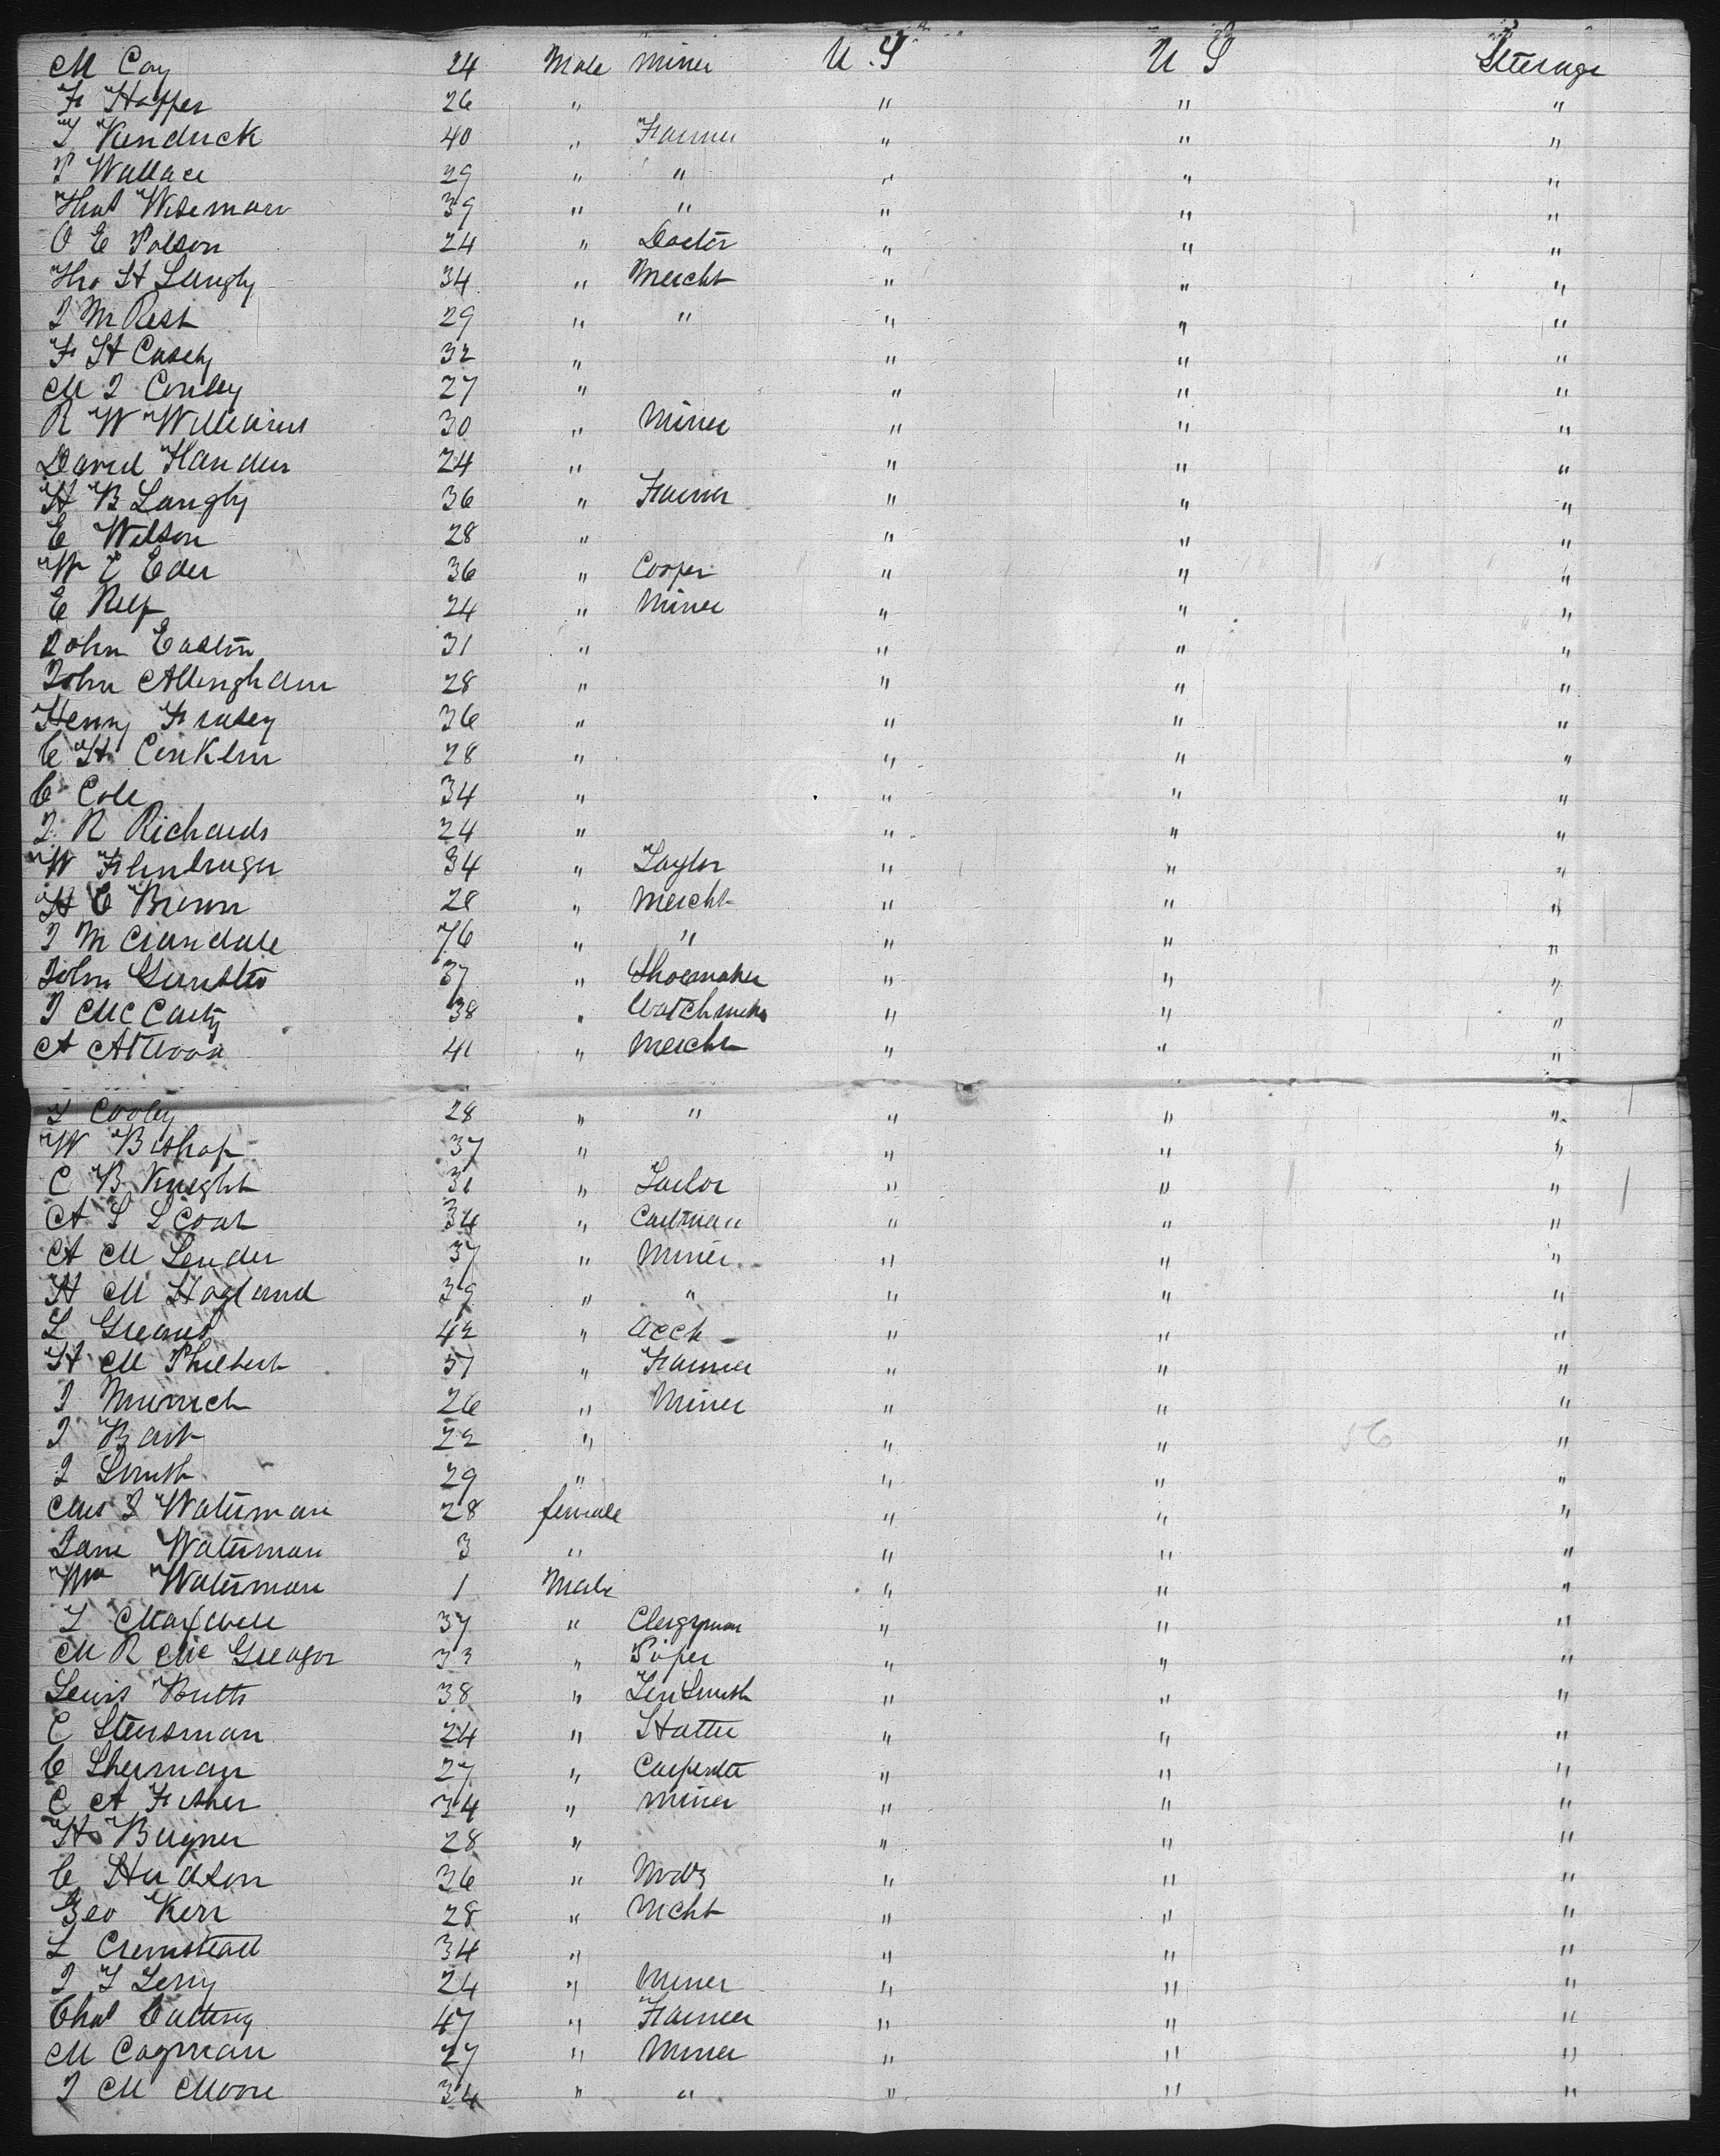 M Coy 24 Male Miner U.S U S Steerage
F Hopper 26 " " " "
J Kendrick 40 " Farmer " " "
P Wallace 29 " " " " "
Thos Wiseman 39 " " " " "
O E Polson 24 " Doctor " " "
Tho H Langly 34 " Mercht " " "
J M Rest 29 " " " " "
F H Casely 32 " " " "
M J Conley 27 " " " "
R W Williams 30 " Miner " " "
David Handen 24 " " " "
H B Langly 36 " Farmer " " "
E Wilson 28 " " " "
W E Eder 36 " Cooper " " "
E Relf 24 " Miner " " "
John Easton 31 " " " "
John Allingham 28 " " " "
Henry Frasey 36 " " " "
C H Conklin 28 " " " "
C Cole 34 " " " "
J R Richards 24 " " " "
W 34 " Taylor " " "
H C Brown 28 " Mercht " " "
J M Crandale 76 " " " " "
John 37 " Shoemaker " " "
J McCarty 38 " Watchmkr " " "
A Atwood 41 " Mercht " " "
J Cooley 28 " " " " "
W Bishop 37 " " " "
C B Knight 31 " Tailor " " "
A S Scoat 34 " Cartman " " "
A M Lender 37 " Miner " " "
H M Hogland 39 " " " " "
L Greaves 42 " Acct " " "
H M Philbert 37 " Farmer " " "
J Munich 26 " Miner " " "
J Bart 22 " " " " 56
J Smith 29 " " " "
Mrs J Waterman 28 female " " "
Jane Waterman 3 " " " "
Wm Waterman 1 Male " " "
L Maxwell 37 " Clergyman " " "
M R McGreagor 33 " Piper " " "
Lewis Butts 38 " Tin Smith " " "
C Steusman 24 " Hatter " " "
C Sherman 27 " Carpenter " " "
C A Fisher 34 " Miner " " "
H Bugner 28 " " " "
C Hudson 36 " " " "
Geo Kerr 28 " Mcht " " "
L Cremstead 34 " " " "
J L Lerry 24 " Miner " " "
Chas Cutting 47 " Farmer " " "
M Cagman 27 " Miner " " "
J M Moore 34 " " " " "